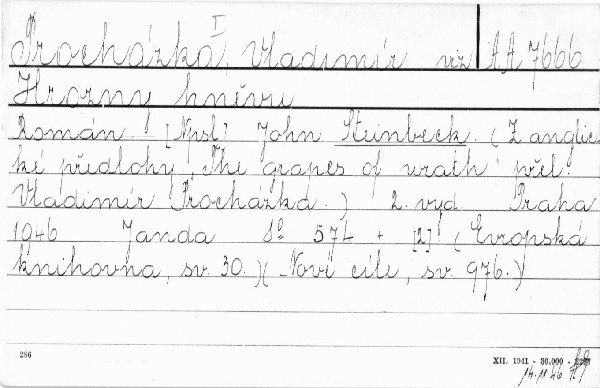 I
Procházka, Vladimír viz AA 7666
Hrozny hněvu
Román. [Npsl.] John Steinbeck. (Z anglic-
ké předlohy "The grapes of wrath" přel.
Vladimír Procházka.) 2. vyd. Praha
1946 Janda 8° 574 + [2] (Evropská
knihovna, sv. 30.)( Nové cíle, sv. 976.)
286 XII. 1941 - 30.000 -
14.11 46